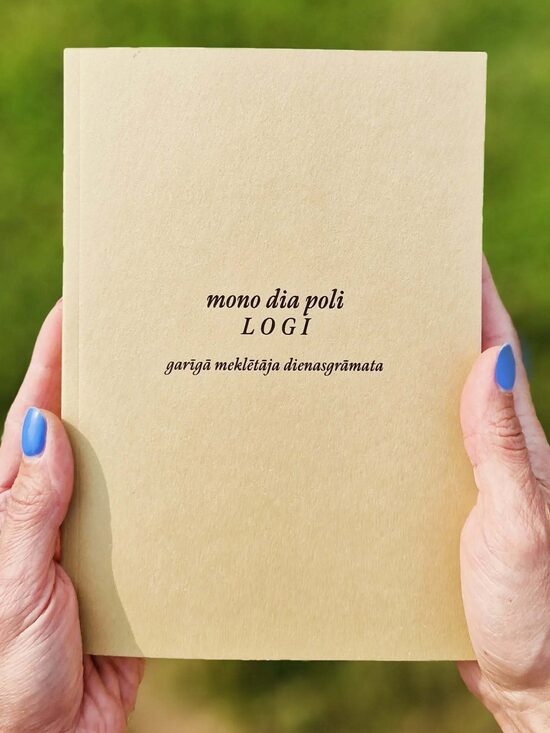 mono dia poli
LOGI
garīgā meklētāja dienasgrāmata